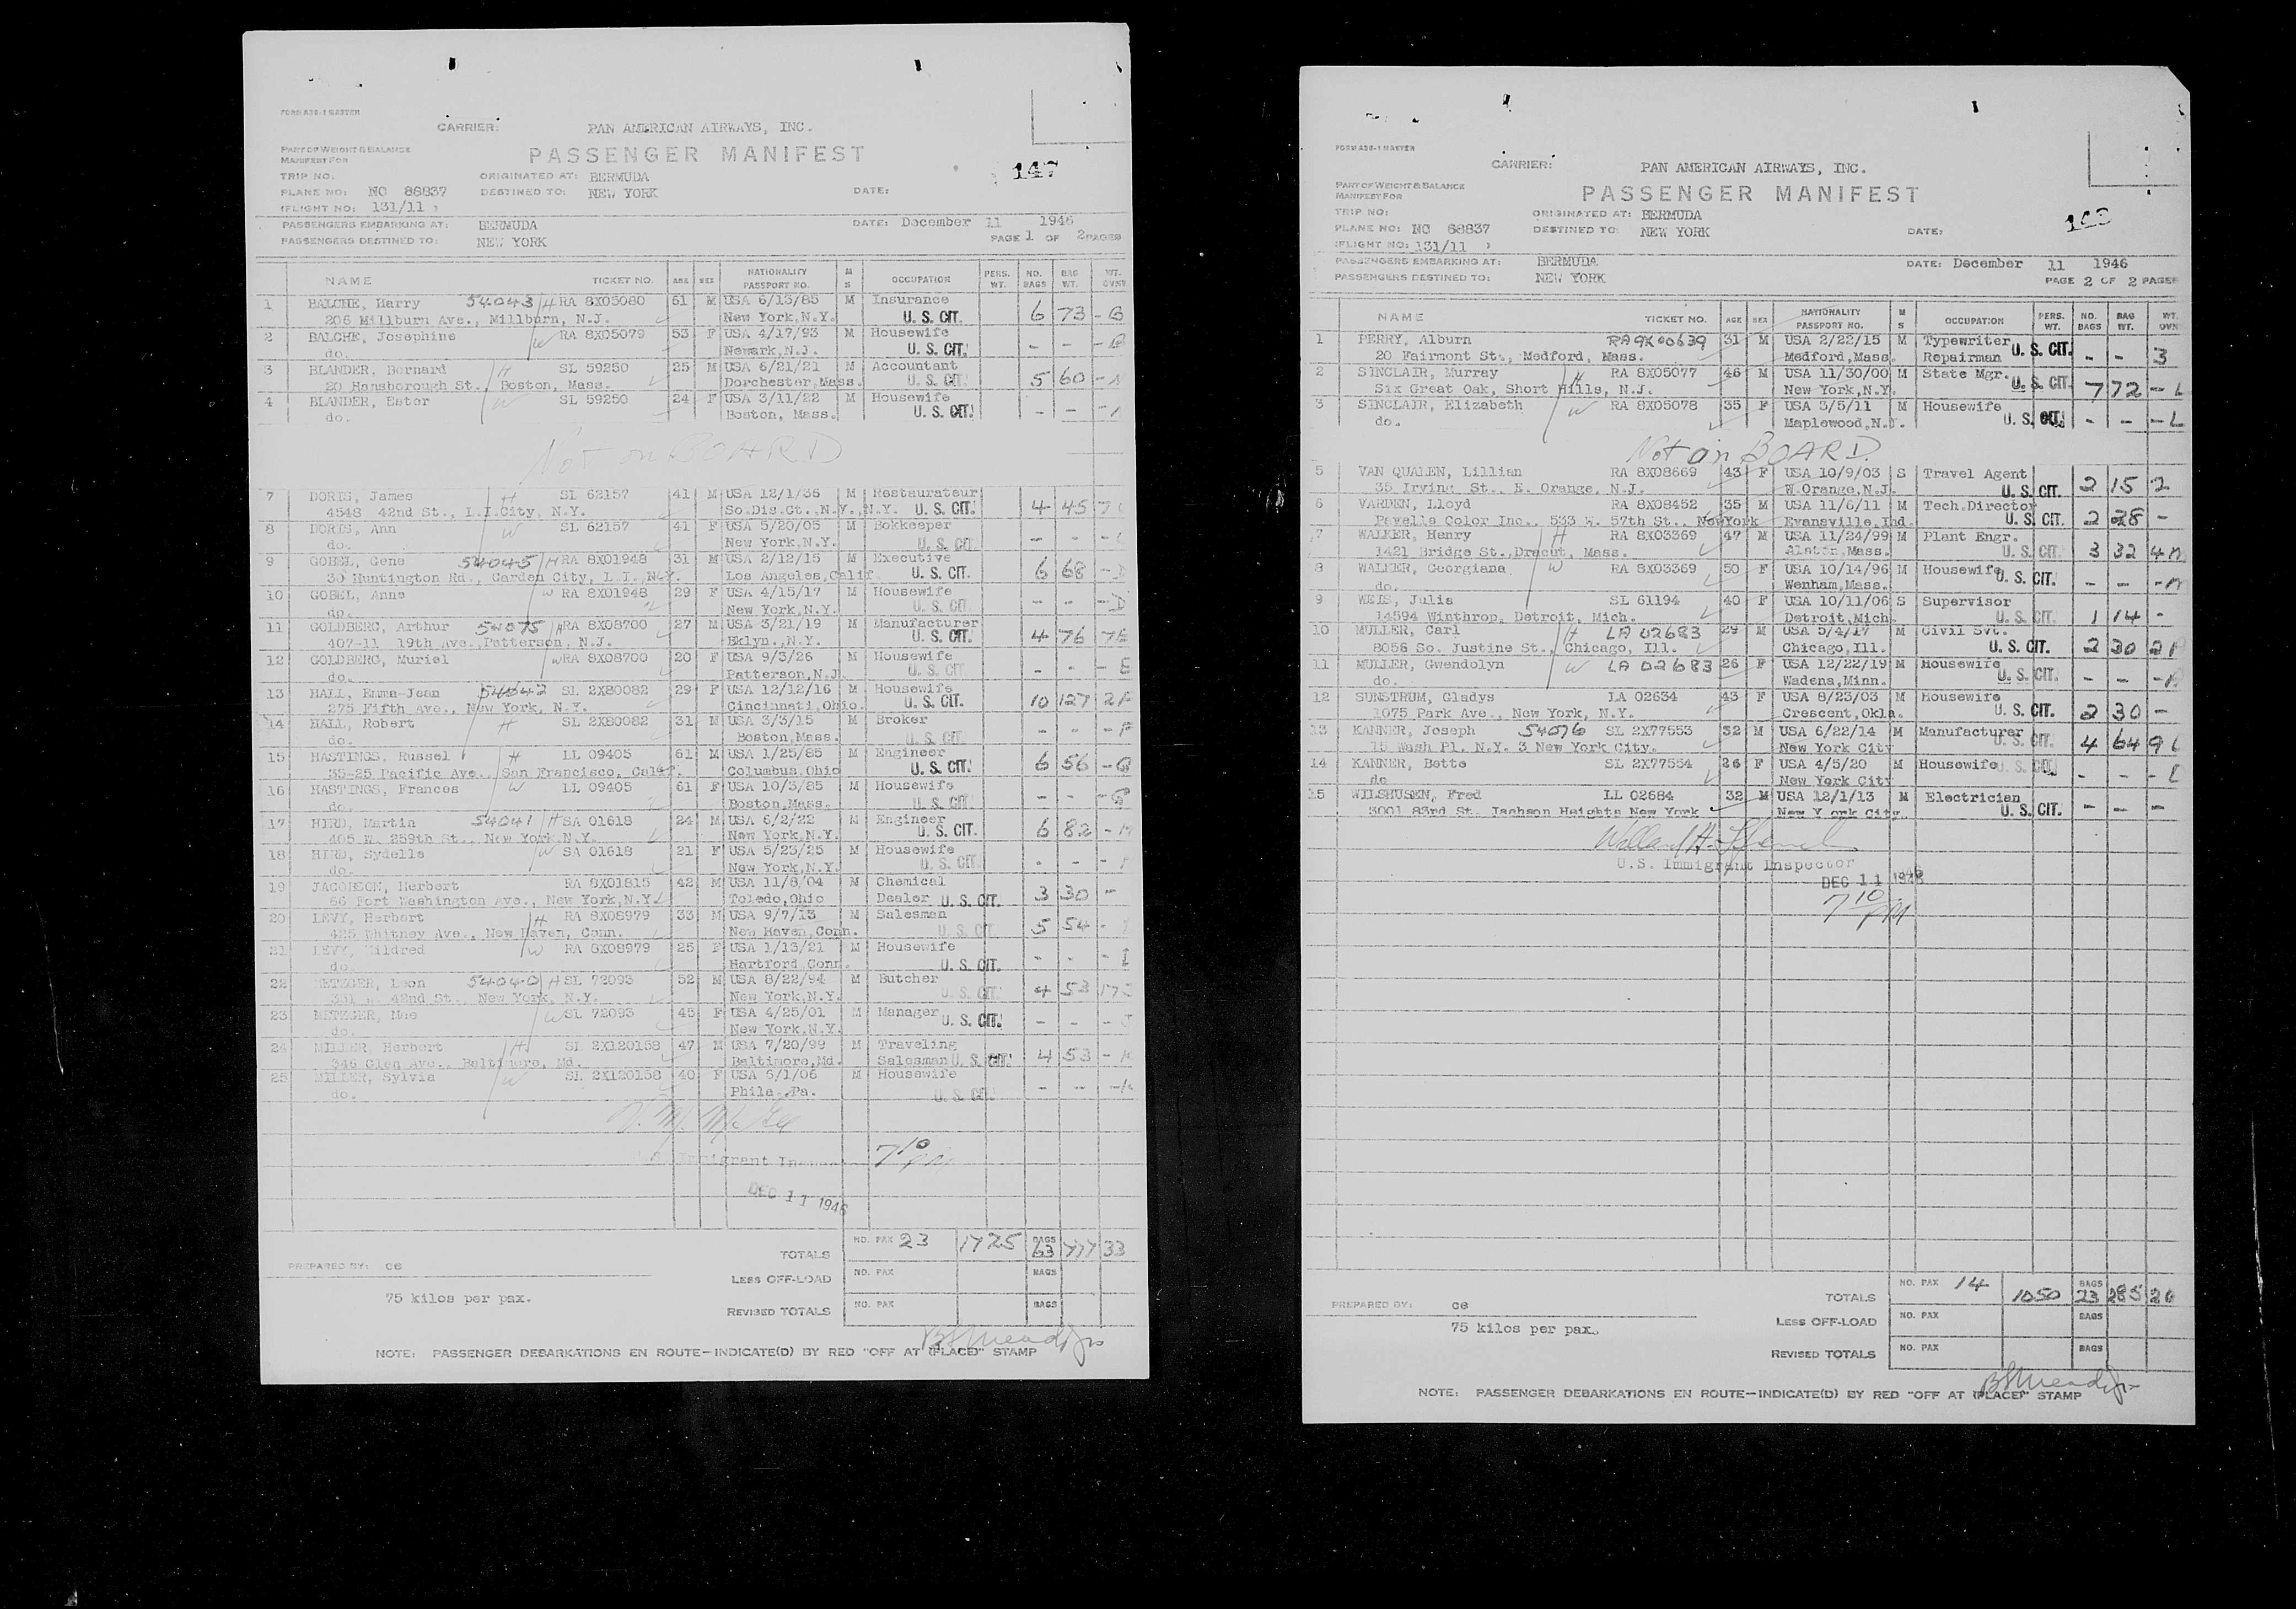 FORM A38-1 MASTER
CARRIER: PAN AMERICAN AIRWAYS, INC.
PART OF WEIGHT & BALANCE
MANIFEST FOR
PASSENGER MANIFEST
147
TRIP NO: ORIGINATED AT: BERMUDA
PLANE NO: NC 88837 DESTINED TO: NEW YORK DATE:
(FLIGHT NO: 131/11 )
PASSENGERS EMBARKING AT: BERMUDA DATE: December 11 1946
PASSENGERS DESTINED TO: NEW YORK PAGE 1 OF 2 PAGES
NAME TICKET NO. AGE SEX NATIONALITY PASSPORT NO. M S OCCUPATION PERS. WT. NO. BAGS BAG WT. WT. OVNT
1 BALCHE, Harry 54043 H RA 8X05080 61 M USA 6/13/85 M Insurance 6 73 -
206 Millburn Ave., Millburn, N.J. New York,N.Y. U. S. CIT.
2 BALCHE, Josephine W RA 8X05079 53 F USA 4/17/93 M Housewife - - -
do. Newark,N.J. U. S. CIT.
3 BLANDER, Bernard H SL 59250 25 M USA 6/21/21 M Accountant 5 60 -
20 Hansborough St., Boston, Mass. Dorchester,Mass. U. S. CIT.
4 BLANDER, Ester W SL 59250 24 F USA 3/11/22 M Housewife - - -
do. Boston, Mass. U. S. CIT.
Not on BOARD
7 DORIS, James H SL 62157 41 M USA 12/1/36 M Restaurateur 4 45 7
4548 42nd St., L.I.City, N.Y. So.Dis.Ct.,N.Y.,N.Y. U. S. CIT.
8 DORIS, Ann W SL 62157 41 F USA 5/20/05 M Bokkeeper - - -
do. New York,N.Y. U. S. CIT.
9 GOBEL, Gene 54045 H RA 8X01948 31 M USA 2/12/15 M Executive 6 68 -
30 Huntington Rd., Garden City, L.I., N.Y. Los Angeles,Calif. U. S. CIT.
10 GOBEL, Anne W RA 8X01948 29 F USA 4/15/17 M Housewife - - -
do. New York,N.Y. U. S. CIT.
11 GOLDBERG, Arthur 54075 H RA 8X08700 27 M USA 3/21/19 M Manufacturer 4 76 7E
407-11 19th Ave.,Patterson, N.J. Bklyn.,N.Y. U. S. CIT.
12 GOLDBERG, Muriel W RA 8X08700 20 F USA 9/3/26 M Housewife - - - E
do. Patterson,N.J. U. S. CIT.
13 HALL, Emma-Jean 54042 SL 2X80082 29 F USA 12/12/16 M Housewife 10 127 2F
275 Fifth Ave., New York, N.Y. Cincinnati,Ohio. U. S. CIT.
14 HALL, Robert H SL 2X80082 31 M USA 3/3/15 M Broker - - - F
do. Boston,Mass. U. S. CIT.
15 HASTINGS, Russel H LL 09405 61 M USA 1/25/85 M Engineer 6 56 - G
35-25 Pacific Ave., San Francisco, Calif. Columbus,Ohio U. S. CIT.
16 HASTINGS, Frances W LL 09405 61 F USA 10/3/85 M Housewife - - - G
do. Boston,Mass. U. S. CIT.
17 HIRD, Martin 54041 H SA 01618 24 M USA 6/2/22 M Engineer 6 82 - H
405 W. 259th St., New York,N.Y. New York,N.Y. U. S. CIT.
18 HIRD, Sydelle W SA 01618 21 F USA 5/23/25 M Housewife - - -
do. New York,N.Y. U. S. CIT.
19 JACOBSON, Herbert RA 8X01815 42 M USA 11/8/04 M Chemical 3 30 -
66 Fort Washington Ave., New York,N.Y. Toledo,Ohio Dealer U. S. CIT.
20 LEVY, Herbert H RA 8X08979 33 M USA 9/7/13 M Salesman 5 54 -
425 Whitney Ave., New Haven, Conn. New Haven,Conn. U. S. CIT.
21 LEVY, Mildred W RA 8X08979 25 F USA 1/13/21 M Housewife - - - I
do. Hartford Conn. U. S. CIT.
22 METZGER, Leon 54040 H SL 72093 52 M USA 8/22/94 M Butcher 4 53 17
331 W. 42nd St., New York, N.Y. New York,N.Y. U. S. CIT.
23 METZGER, Mae W SL 72093 45 F USA 4/25/01 M Manager - - -
do. New York,N.Y. U. S. CIT.
24 MILLER, Herbert H SL 2X120158 47 M USA 7/20/99 M Traveling 4 53 -
346 Glen Ave., Baltimore, Md. Baltimore,Md. Salesman U. S. CIT.
25 MILLER, Sylvia W SL 2X120158 40 F USA 6/1/06 M Housewife - - -
do. Phila.,Pa. U. S. CIT.
Immigrant
7 10 PM
DEC 11 1946
TOTALS NO. PAX 23 1725 BAGS 63 777 33
PREPARED BY: ce
LESS OFF-LOAD NO. PAX BAGS
75 kilos per pax.
REVISED TOTALS NO. PAX BAGS
NOTE: PASSENGER DEBARKATIONS EN ROUTE—INDICATE(D) BY RED "OFF AT (PLACE)" STAMP
FORM A38-1 MASTER
CARRIER: PAN AMERICAN AIRWAYS, INC.
PART OF WEIGHT & BALANCE
MANIFEST FOR
PASSENGER MANIFEST
TRIP NO: ORIGINATED AT: BERMUDA
PLANE NO: NC 88837 DESTINED TO: NEW YORK DATE:
(FLIGHT NO: 131/11 )
PASSENGERS EMBARKING AT: BERMUDA DATE: December 11 1946
PASSENGERS DESTINED TO: NEW YORK PAGE 2 OF 2 PAGES
NAME TICKET NO. AGE SEX NATIONALITY PASSPORT NO. M S OCCUPATION PERS. WT. NO. BAGS BAG WT. WT. OVNT
1 PERRY, Alburn RA 9X00639 31 M USA 2/22/15 M Typewriter - - 3
20 Fairmont St., Medford, Mass. Medford,Mass. Repairman U. S. CIT.
2 SINCLAIR, Murray H RA 8X05077 46 M USA 11/30/00 M State Mgr. 7 72 - L
Six Great Oak, Short Hills, N.J. New York,N.Y. U. S. CIT.
3 SINCLAIR, Elizabeth W RA 8X05078 35 F USA 3/5/11 M Housewife - - - L
do. Maplewood,N.J. U. S. CIT.
Not on BOARD
5 VAN QUALEN, Lillian RA 8X08669 43 F USA 10/9/03 S Travel Agent 2 15 2
35 Irving St., E. Orange, N.J. W.Orange,N.J. U. S. CIT.
6 VARDEN, Lloyd RA 8X08452 35 M USA 11/6/11 M Tech.Director 2 38 -
Pavelle Color Inc., 533 W. 57th St., NewYork Evansville,Ind. U. S. CIT.
7 WALKER, Henry H RA 8X03369 47 M USA 11/24/99 M Plant Engr. 3 32 4M
1421 Bridge St.,Dracut, Mass. Alston,Mass. U. S. CIT.
8 WALKER, Georgiana W RA 8X03369 50 F USA 10/14/96 M Housewife - - - M
do. Wenham,Mass. U. S. CIT.
9 WEIS, Julia SL 61194 40 F USA 10/11/06 S Supervisor 1 14 -
14594 Winthrop, Detroit, Mich. Detroit,Mich. U. S. CIT.
10 MULLER, Carl H LA 02683 29 M USA 5/4/17 M Civil Svt. 2 30 2
8056 So. Justine St., Chicago, Ill. Chicago,Ill. U. S. CIT.
11 MULLER, Gwendolyn W LA 02683 26 F USA 12/22/19 M Housewife - - -
do. Wadena,Minn. U. S. CIT.
12 SUNSTRUM, Gladys LA 02634 43 F USA 8/23/03 M Housewife 2 30 -
1075 Park Ave., New York, N.Y. Crescent,Okla. U. S. CIT.
13 KANNER, Joseph 54076 SL 2X77553 32 M USA 6/22/14 M Manufacturer 4 64 9
15 Wash Pl. N.Y. 3 New York City. New York City U. S. CIT.
14 KANNER, Bette SL 2X77554 26 F USA 4/5/20 M Housewife - - -
do New York City U. S. CIT.
15 WILSHUSEN, Fred LL 02684 32 M USA 12/1/13 M Electrician - - -
3001 83rd St. Jackson Heights New York New York City. U. S. CIT.
U.S. Immigrant Inspector
DEC 11 1946
7 10 PM
TOTALS NO. PAX 14 1050 BAGS 23 285 20
PREPARED BY: ce
LESS OFF-LOAD NO. PAX BAGS
75 kilos per pax.
REVISED TOTALS NO. PAX BAGS
NOTE: PASSENGER DEBARKATIONS EN ROUTE—INDICATE(D) BY RED "OFF AT (PLACE)" STAMP